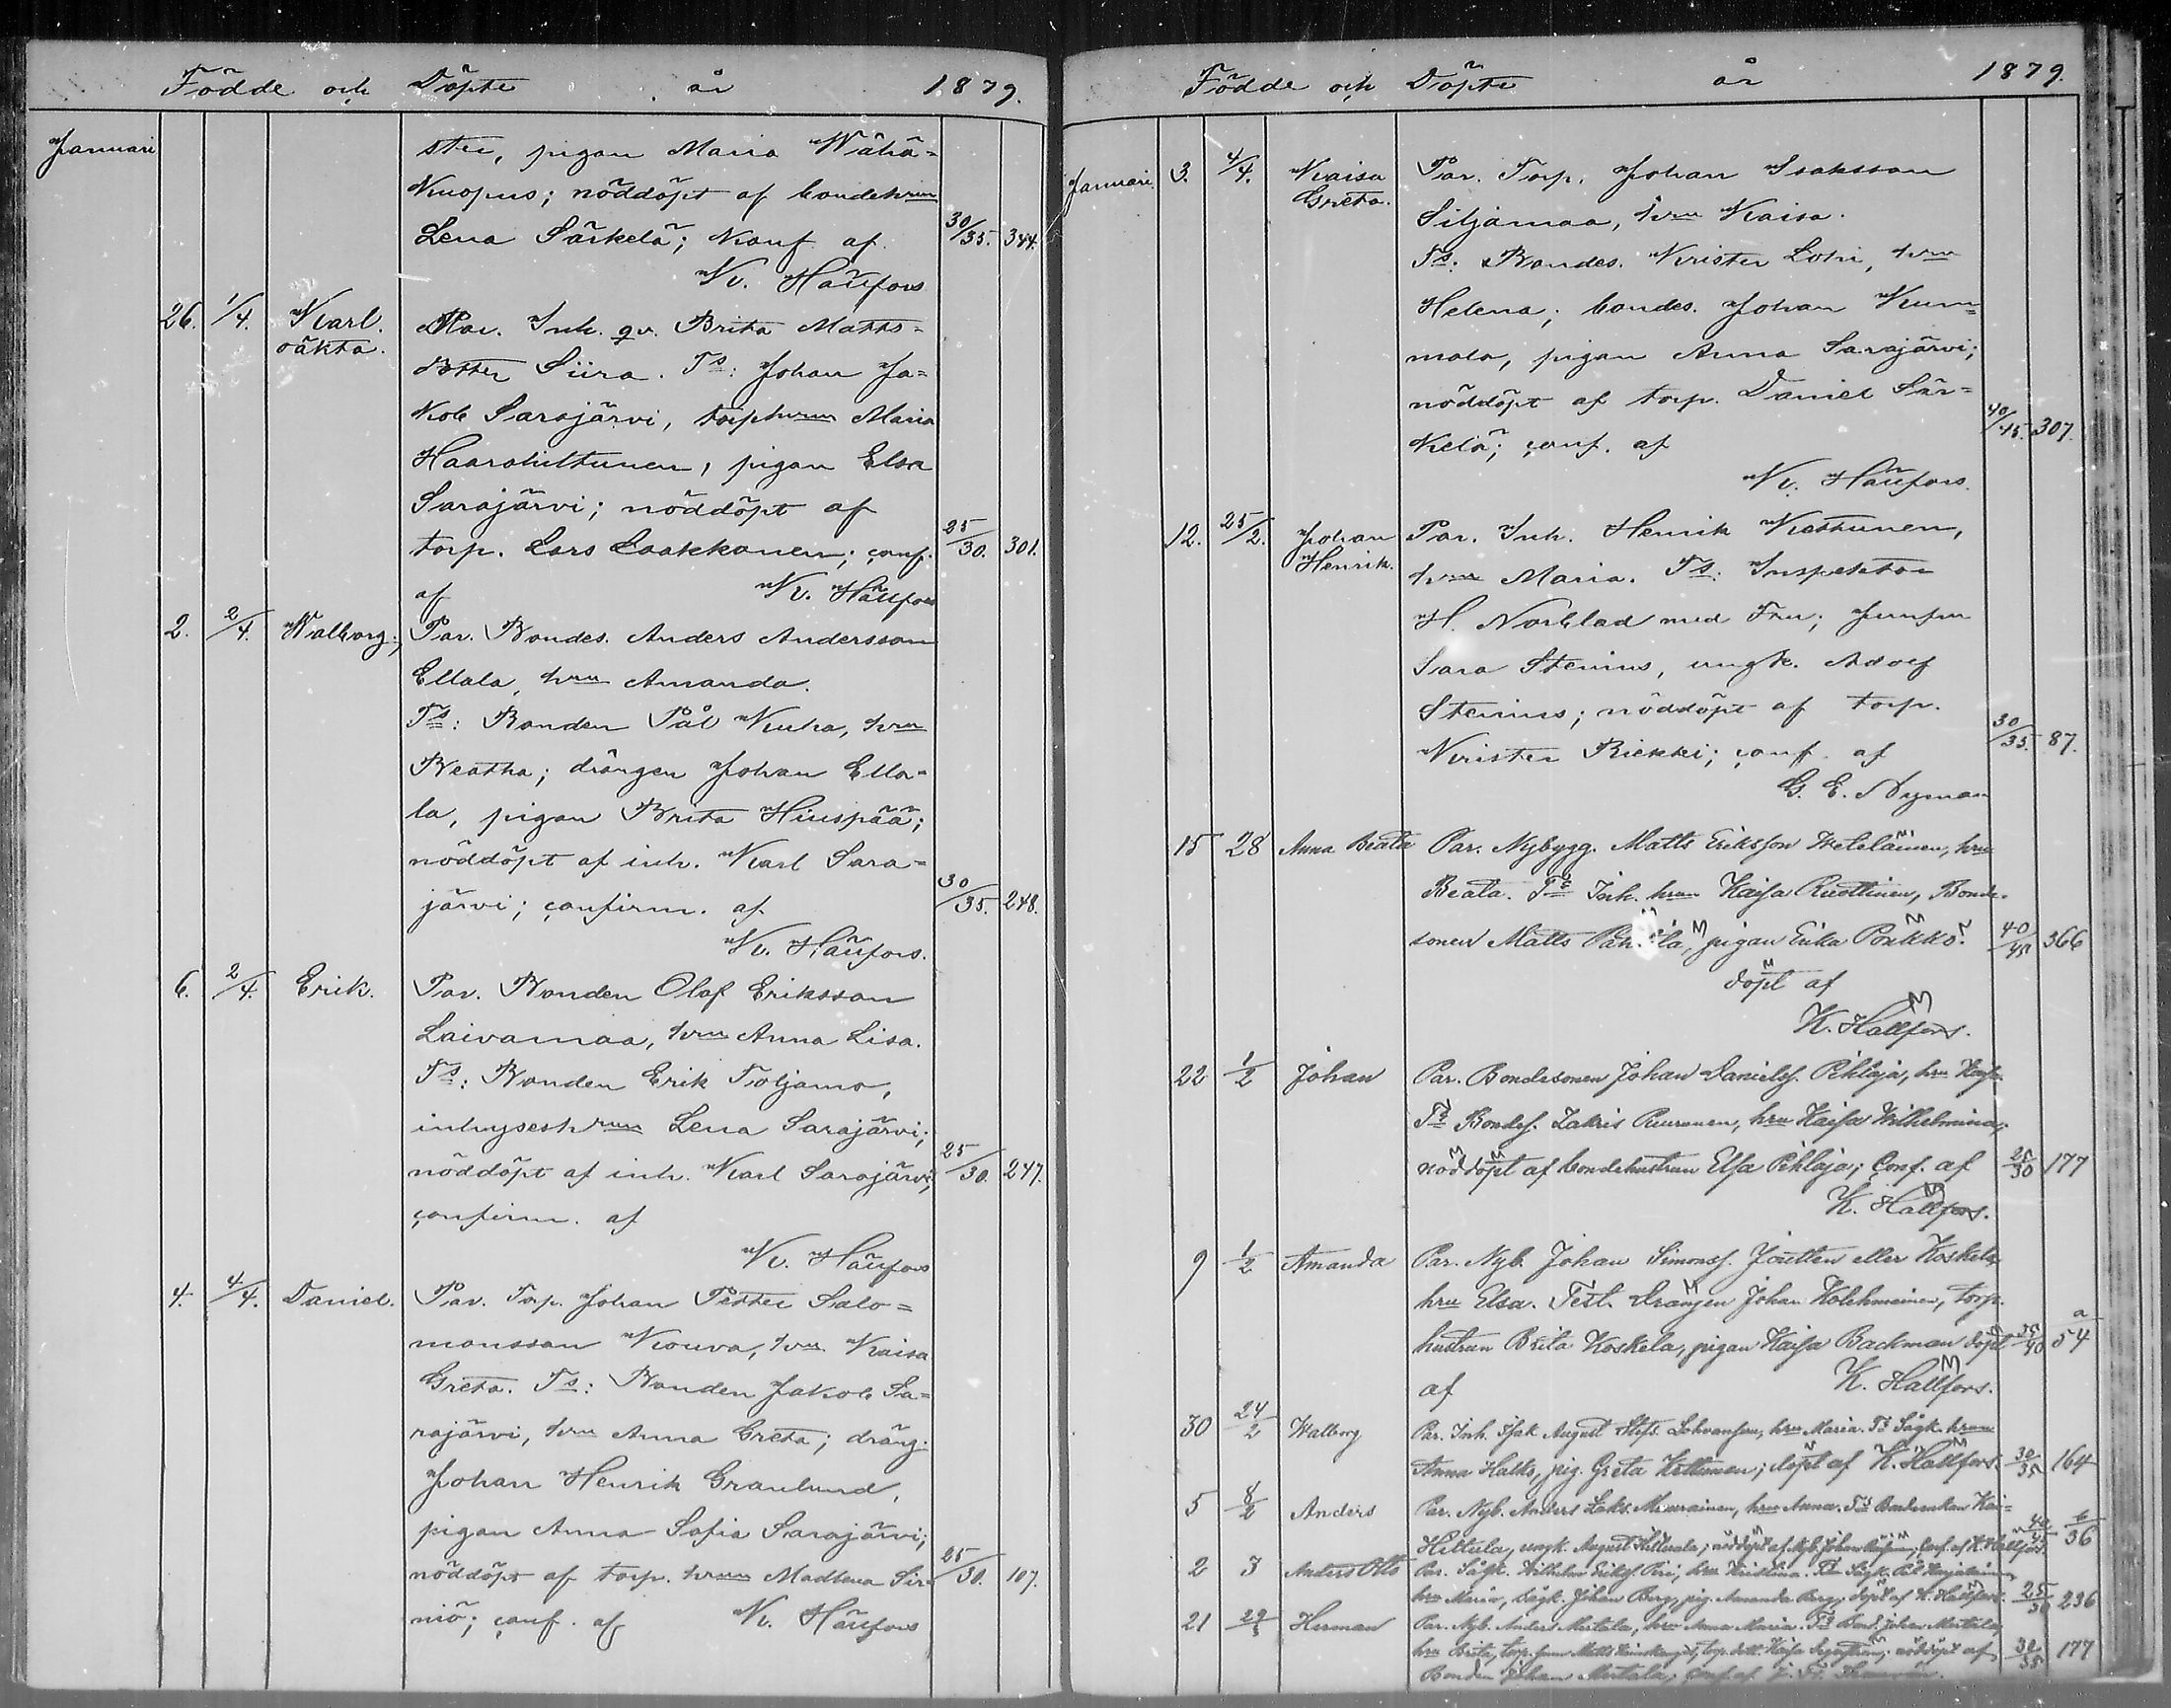 Födde och Döpte år 1879.
Januari
ster, pigan Maria Wähä=
Kuopus; nöddöpt af bondehrun
Lena Särkelä; Konf. af 30/35. 344.
K. Hällfors
26. 1/4. Karl. oäkta. Mor. Inh. qv. Brita Matts=
dotter Siira. Ts: Johan Ja=
kob Sarajärvi, torphrun Maria
Haarahiltunen, pigan Elsa
Sarajärvi; nöddöpt af
torp. Lars Laakkonen; conf. 25/30. 301.
af K. Hällfors
2. 2/4. Walborg. Par. Bondes. Anders Andersson
Ellala, hru Amanda.
Ts: Bonden Pål Kuha, hru
Beatha; drängen Johan Ella=
la, pigan Brita Hiuspää;
nöddöpt af inh. Karl Sara=
järvi; confirm. af 30/35. 248.
K. Hällfors.
6. 2/4. Erik. Par. Bonden Olof Eriksson
Laivamaa, hru Anna Lisa.
Ts: Bonden Erik Toljamo,
inhyseshrun Lena Sarajärvi;
nöddöpt af inh. Karl Sarajärvi; 25/30. 247.
confirm. af
K. Hällfors
4. 4/4. Daniel. Par. Torp. Johan Petter Salo=
monsson Kouva, hru Kaisa
Greta. Ts: Bonden Jakob Sa=
rajärvi, hru Anna Greta; dräng.
Johan Henrik Granlund,
pigan Anna Sofia Sarajärvi;
nöddöpt af torp. hrun Madlena Sir= 25/30. 107.
niö; conf. af K. Hällfors
Födde och Döpte år 1879.
Januari 3. 4/4. Kaisa Par. Torp. Johan Isaksson
Greta. Siljamaa, hru Kaisa.
Ts: Bondes. Krister Lohi, hru
Helena; bondes. Johan Kum=
mala, pigan Anna Sarajärvi;
nöddöpt af torp. Daniel Sär=
kelä; conf. af 40/45. 307.
K. Hällfors.
12. 25/2. Johan Par. Inh. Henrik Kestunen,
Henrik. hru Maria. Ts: Inspektor
H. Norblad med Fru; Jumfru
Sara Stenius, ungk. Adolf
Stenius; nöddöpt af torp.
Krister Riekki; conf. af 30/35. 87.
G. E. Nyman
15 28 Anna Beata Par. Nybygg. Matts Eriksson Heteläinen, hru
Beata. Ts Inh. hrun Kaisa Ruottinen, Bonde-
sonen Matts pigan Erika Porkko. 40/45 366
döpt af
K. Hällfors.
22 1/2 Johan Par. Bondesonen Johan Danielss. Pihlaja, hru Kaisa.
Ts Bondes. Zakris Puuronen, hru Kaisa Wilhelmina;
nöddöpt af bondehustrun Elsa Pihlaja; Conf. af 25/30 177
K. Hällfors.
9 1/2 Amanda Par. Nyb. Johan Simonss. Joutten eller Koskela,
hru Elsa. Test. Drängen Johan Kolehmainen, torp.
hustrun Brita Koskela, pigan Kaisa Backman döpt 35/40 a/54
af K. Hällfors.
30 24/2 Walborg Par. Inh. Isak August Lohvansuu, hru Maria. Ts Sågk. hrun
Anna Halko, pig. Greta Kettunen; döpt af K. Hällfors. 30/35 164
5 8/2 Anders Par. Nyb. Anders Zaks. Murainen, hru Anna. Ts
Hiltula, ungk. August Hiltula; nöddöpt af Nyb. Johan conf. af K. Hällfors. 40/45 b/36
2 3 Anders Otto Par. Sågk. Wilhelm Erikss. Piri, hru Kristina. Ts Sågk. Pål
hru Maria, Sågk. Johan Berg, pig. Amanda Berg; döpt af K. Hällfors. 25/30 236
21 Herman Par. Nyb. Anders Mertala, hru Anna Maria. Ts Bond. Johan Mertala,
hru Brita, torp. Matts torp. dott. Kaisa nöddöpt af 30/35 177
Bonden Johan Mertala; conf. af